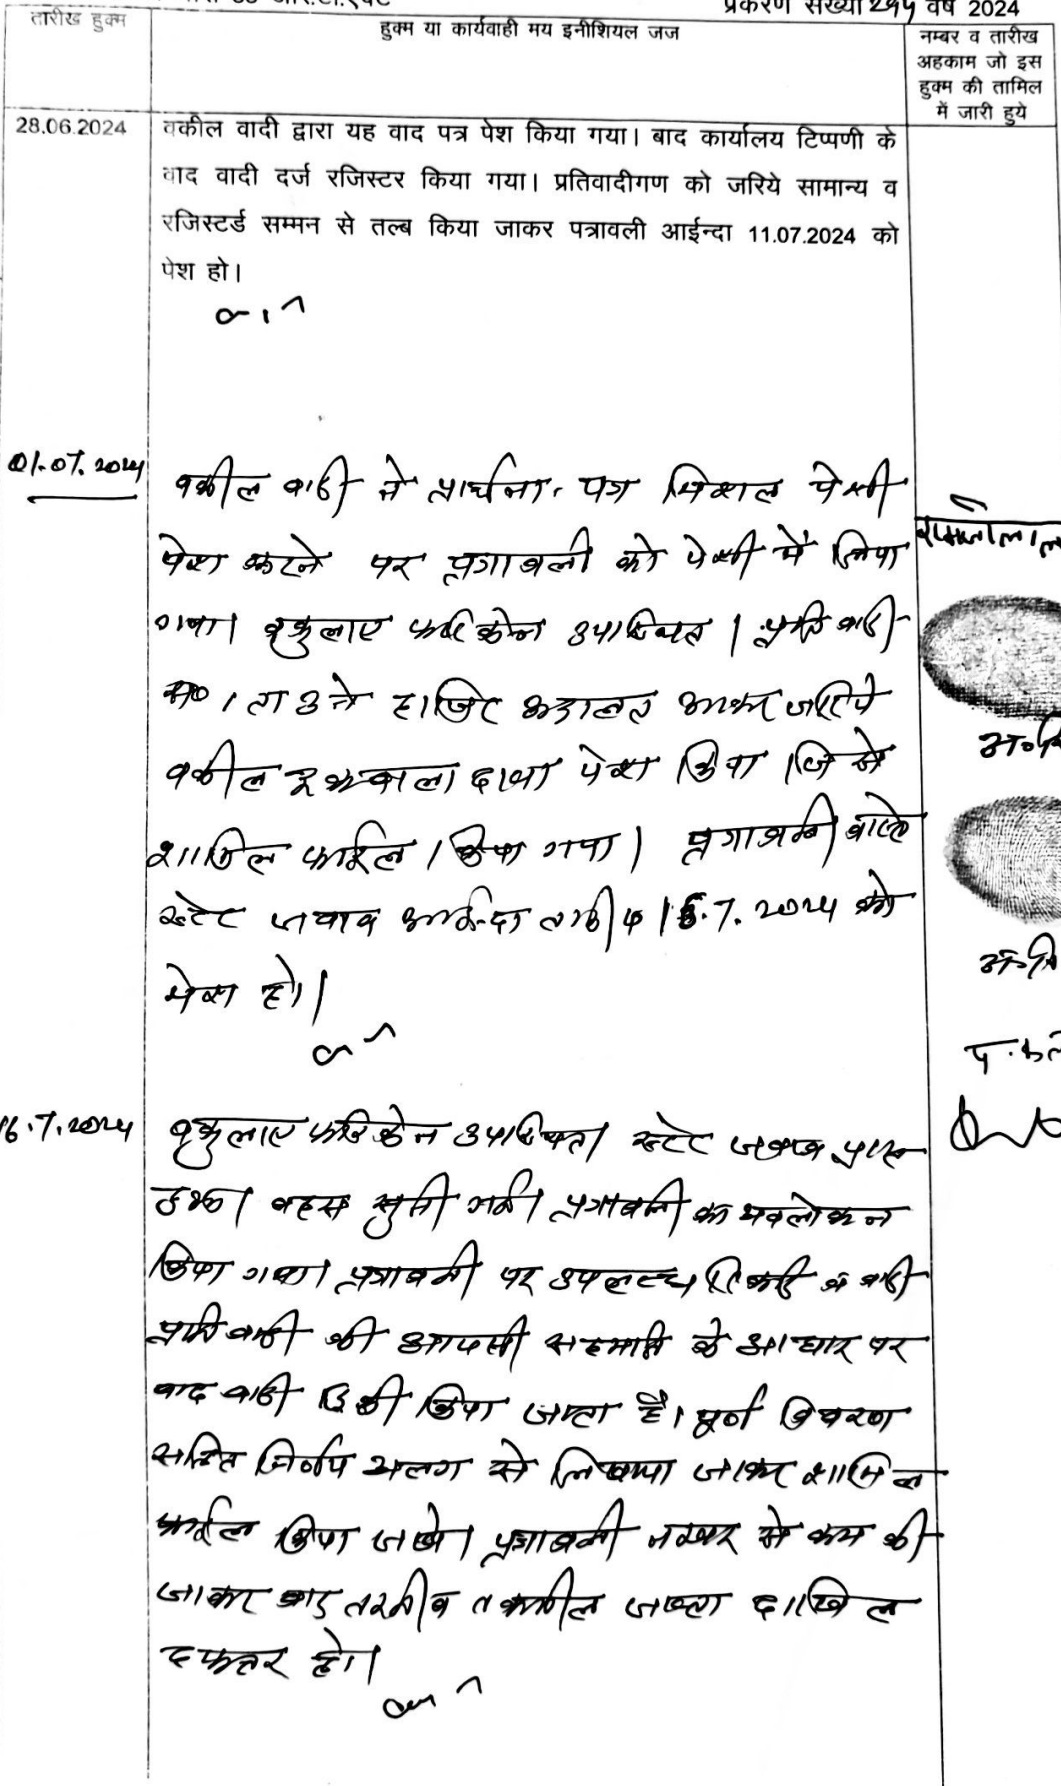 प्रकरण संख्या 244 वर्ष 2024
तारीख हुक्म
हुक्म या कार्यवाही मय इनीशियल जज
नम्बर व तारीख
अहकाम जो इस
हुक्म की तामिल
में जारी हुये
28.06.2024
वकील वादी द्वारा यह वाद पत्र पेश किया गया। बाद कार्यालय टिप्पणी के
वाद वादी दर्ज रजिस्टर किया गया। प्रतिवादीगण को जरिये सामान्य व
रजिस्टर्ड सम्मन से तल्ब किया जाकर पत्रावली आईन्दा 11.07.2024 को
पेश हो।
01.07.2024
वकील वादी ने प्रार्थना पत्र पेशी
पेश करने पर पत्रावली को पेशी में लिया
गया। वकुलाए फरिकेन उपस्थित। प्रतिवादी
सं० 1 ता 3 ने हाजिर अदालत आकर जरिये
वकील इकबाला दावा पेश किया। जिसे
शामिल फाईल किया गया। पत्रावली वास्ते
स्टेट जवाब आईन्दा तारीख 16.7.2024 को
पेश हो।
16.7.2024
वकुलाए फरिकेन उपस्थित। स्टेट जवाब प्राप्त
हुआ। बहस सुनी गई। पत्रावली का अवलोकन
किया गया। पत्रावली पर उपलब्ध रिकार्ड व वादी
प्रतिवादी की आपसी सहमति के आधार पर
वाद वादी डिक्री किया जाता है। पूर्ण विवरण
सहित निर्णय अलग से लिखाया जाकर शामिल
फाईल किया जावे। पत्रावली नम्बर से कम की
जाकर बाद तरतीब तकमील जाब्ता दाखिल
दफ्तर हो।